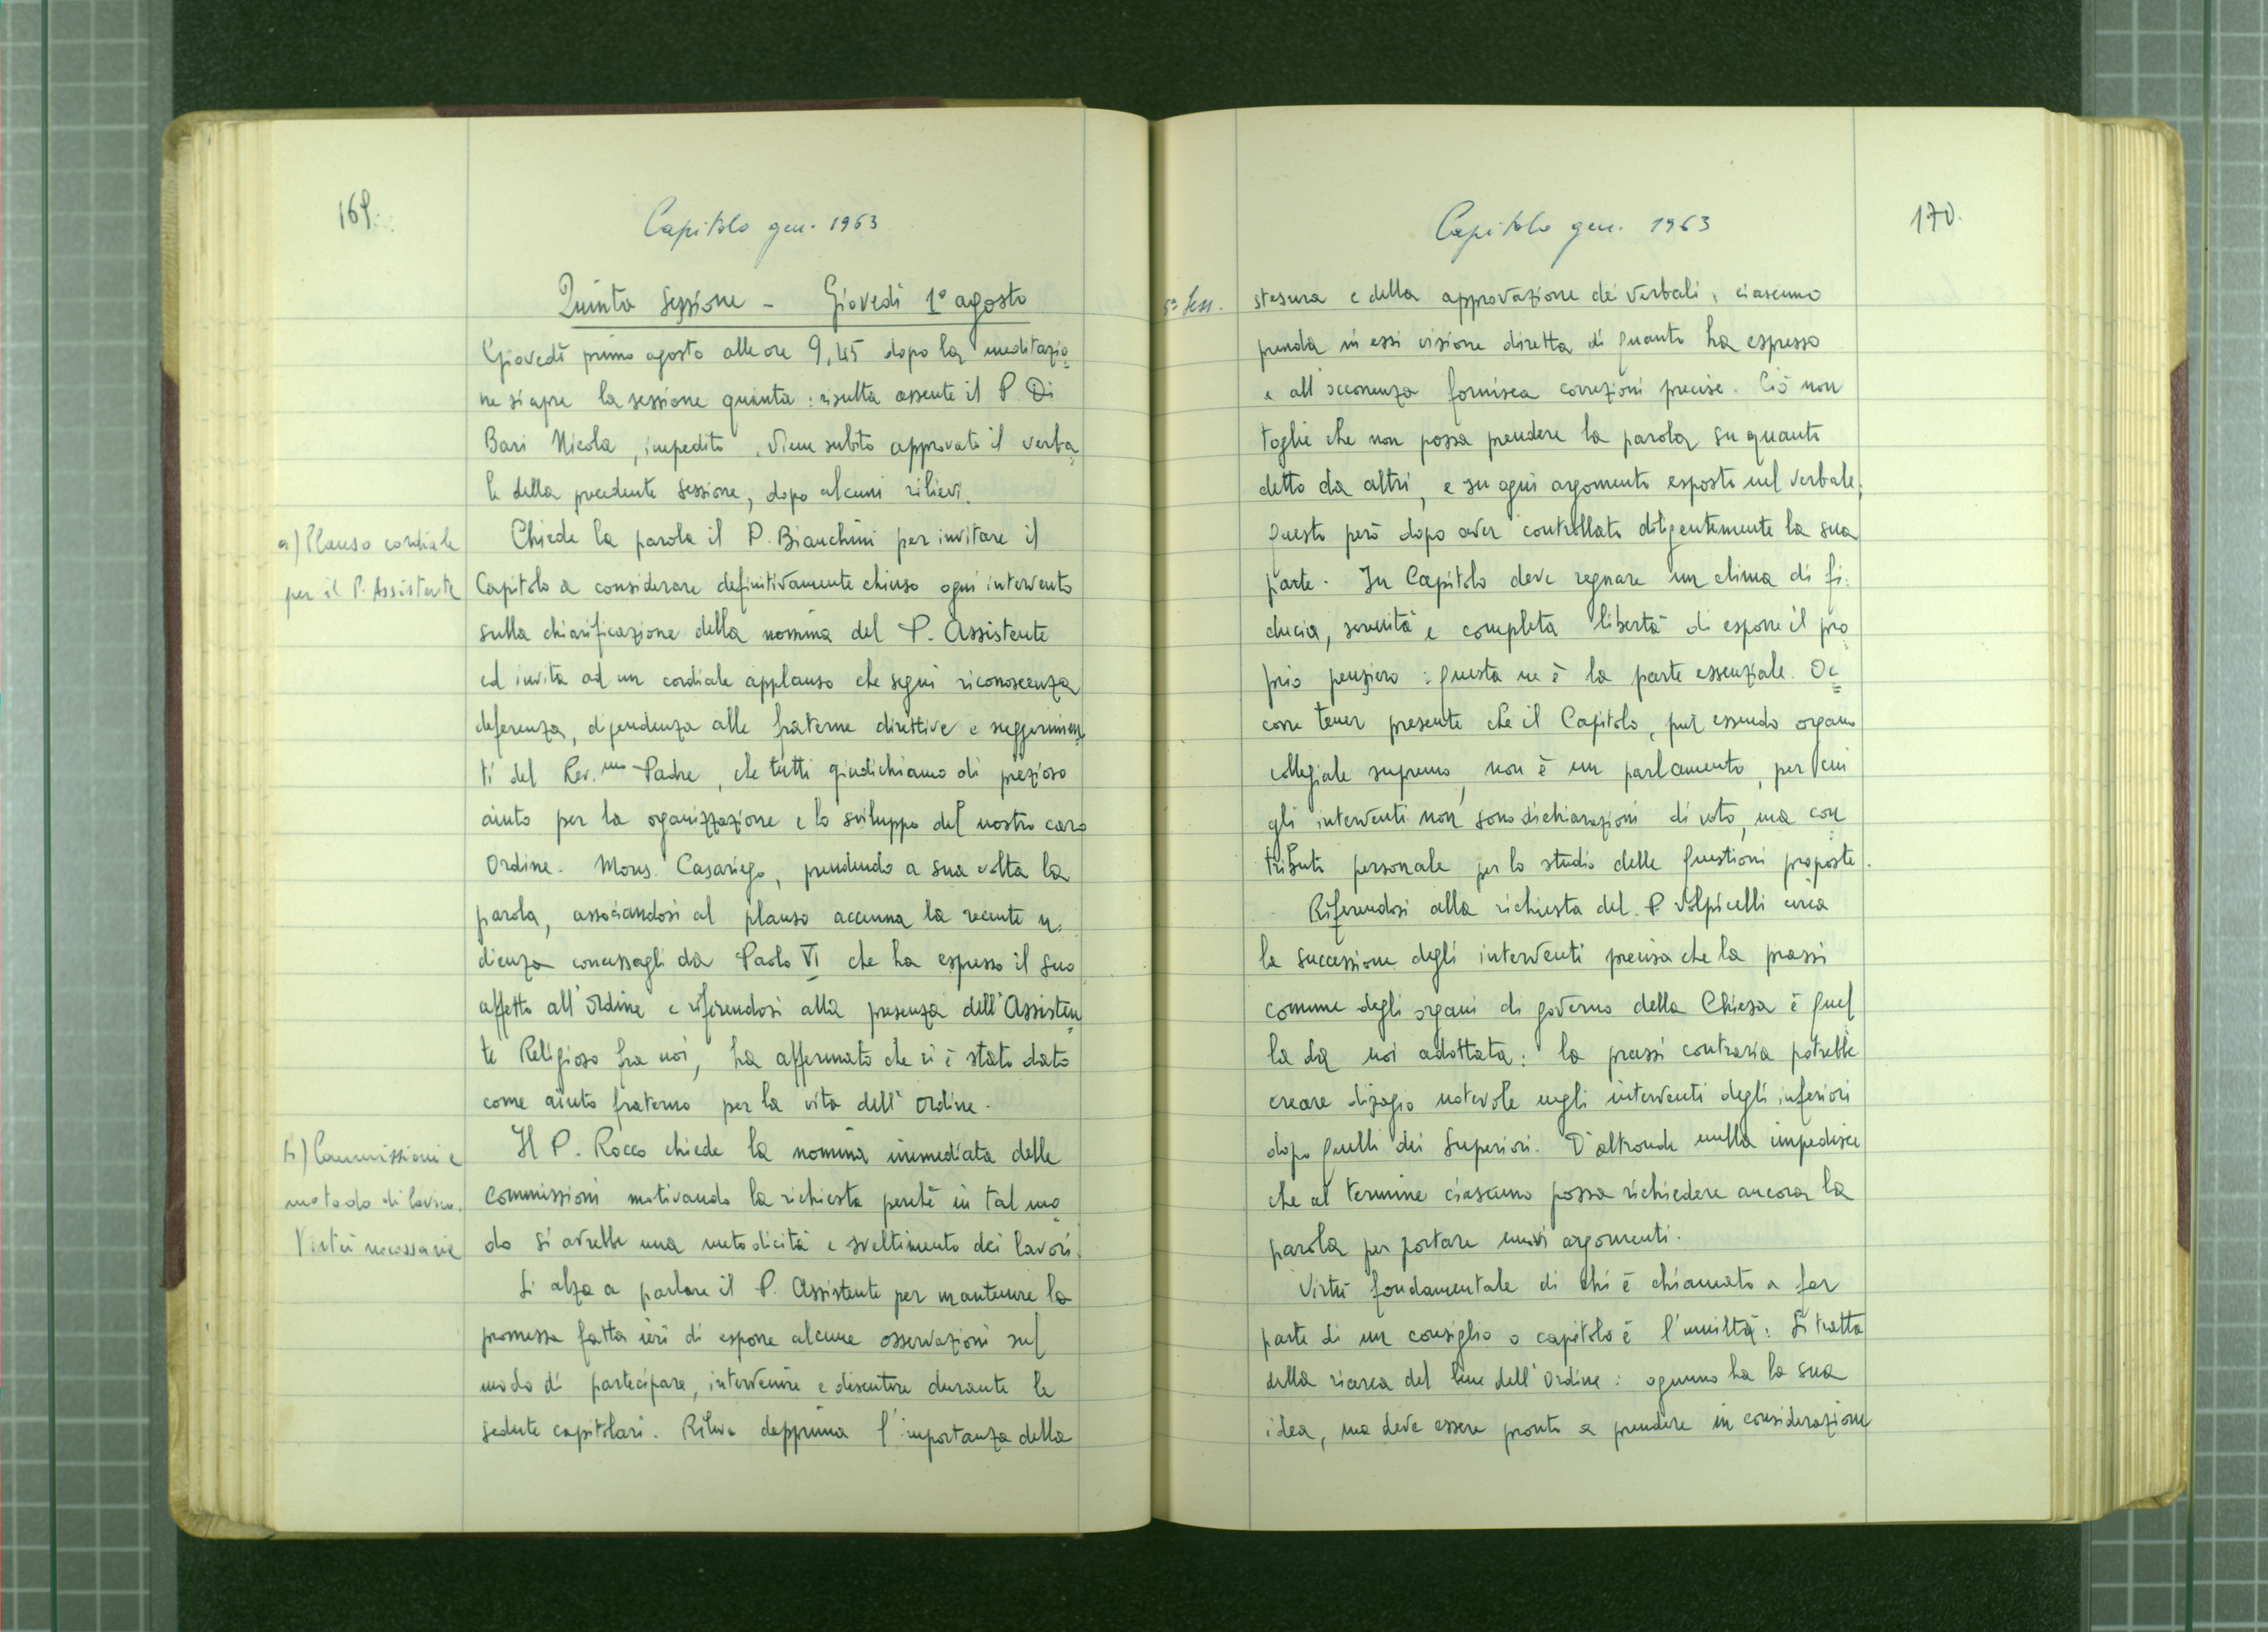 169.
Capitolo gen. 1963
Quinta Sessione - Giovedì 1° agosto
Giovedì primo agosto alle ore 9,45 dopo la meditazio=
ne si apre la sessione quinta: risulta assente il P. Di
Bari Nicola, impedito. Viene subito approvato il verba=
le della precedente sessione, dopo alcuni rilievi.
a) Plauso cordiale
per il P. Assistente
Chiede la parola il P. Bianchini per invitare il
Capitolo a considerare definitivamente chiuso ogni intervento
sulla chiarificazione della nomina del P. Assistente
ed invita ad un cordiale applauso che segni riconoscenza
deferenza, dipendenza alle fraterne direttive e suggerimen=
ti del Rev.mo Padre, che tutti giudichiamo di prezioso
aiuto per la organizzazione e lo sviluppo del nostro caro
Ordine. Mons. Casariego, prendendo a sua volta la
parola, associandosi al plauso accenna la recente u=
dienza concessagli da Paolo VI che ha espresso il suo
affetto all'Ordine e riferendosi alla presenza dell'Assisten=
te Religioso fra noi, ha affermato che ci è stato dato
come aiuto fraterno per la vita dell'Ordine.
b) Commissioni e
metodo di lavoro.
Virtù necessarie
Il P. Rocco chiede la nomina immediata delle
commissioni motivando la richiesta perchè in tal mo=
do si avrebbe una metodicità e sveltimento dei lavori.
Si alza a parlare il P. Assistente per mantenere la
promessa fatta ieri di esporre alcune osservazioni sul
modo di partecipare, intervenire e discutere durante le
sedute capitolari. Rileva dapprima l'importanza della
170.
Capitolo gen. 1963
5ª Sess.
stesura e della approvazione dei verbali: ciascuno
prenda in essi visione diretta di quanto ha espresso
e all'occorrenza fornisca correzioni precise. Ciò non
toglie che non possa prendere la parola su quanto
detto da altri, e su ogni argomento esposto nel verbale;
questo però dopo aver controllato diligentemente la sua
parte. In Capitolo deve regnare un clima di fi=
ducia, serenità e completa libertà di esporre il pro=
prio pensiero: questa ne è la parte essenziale. Oc=
corre tener presente che il Capitolo, pur essendo organo
collegiale supremo, non è un parlamento, per cui
gli interventi non sono dichiarazioni di voto, ma con=
tributo personale per lo studio delle questioni proposte.
Riferendosi alla richiesta del P. Volpicelli circa
la successione degli interventi precisa che la prassi
comune degli organi di governo della Chiesa è quel
la da noi adottata: la prassi contraria potrebbe
creare disagio notevole negli interventi degli inferiori
dopo quelli dei Superiori. D'altronde nulla impedisce
che al termine ciascuno possa richiedere ancora la
parola per portare nuovi argomenti.
Virtù fondamentale di chi è chiamato a far
parte di un consiglio o capitolo è l'umiltà: Si tratta
della ricerca del bene dell'Ordine: ognuno ha la sua
idea, ma deve essere pronto a prendere in considerazione